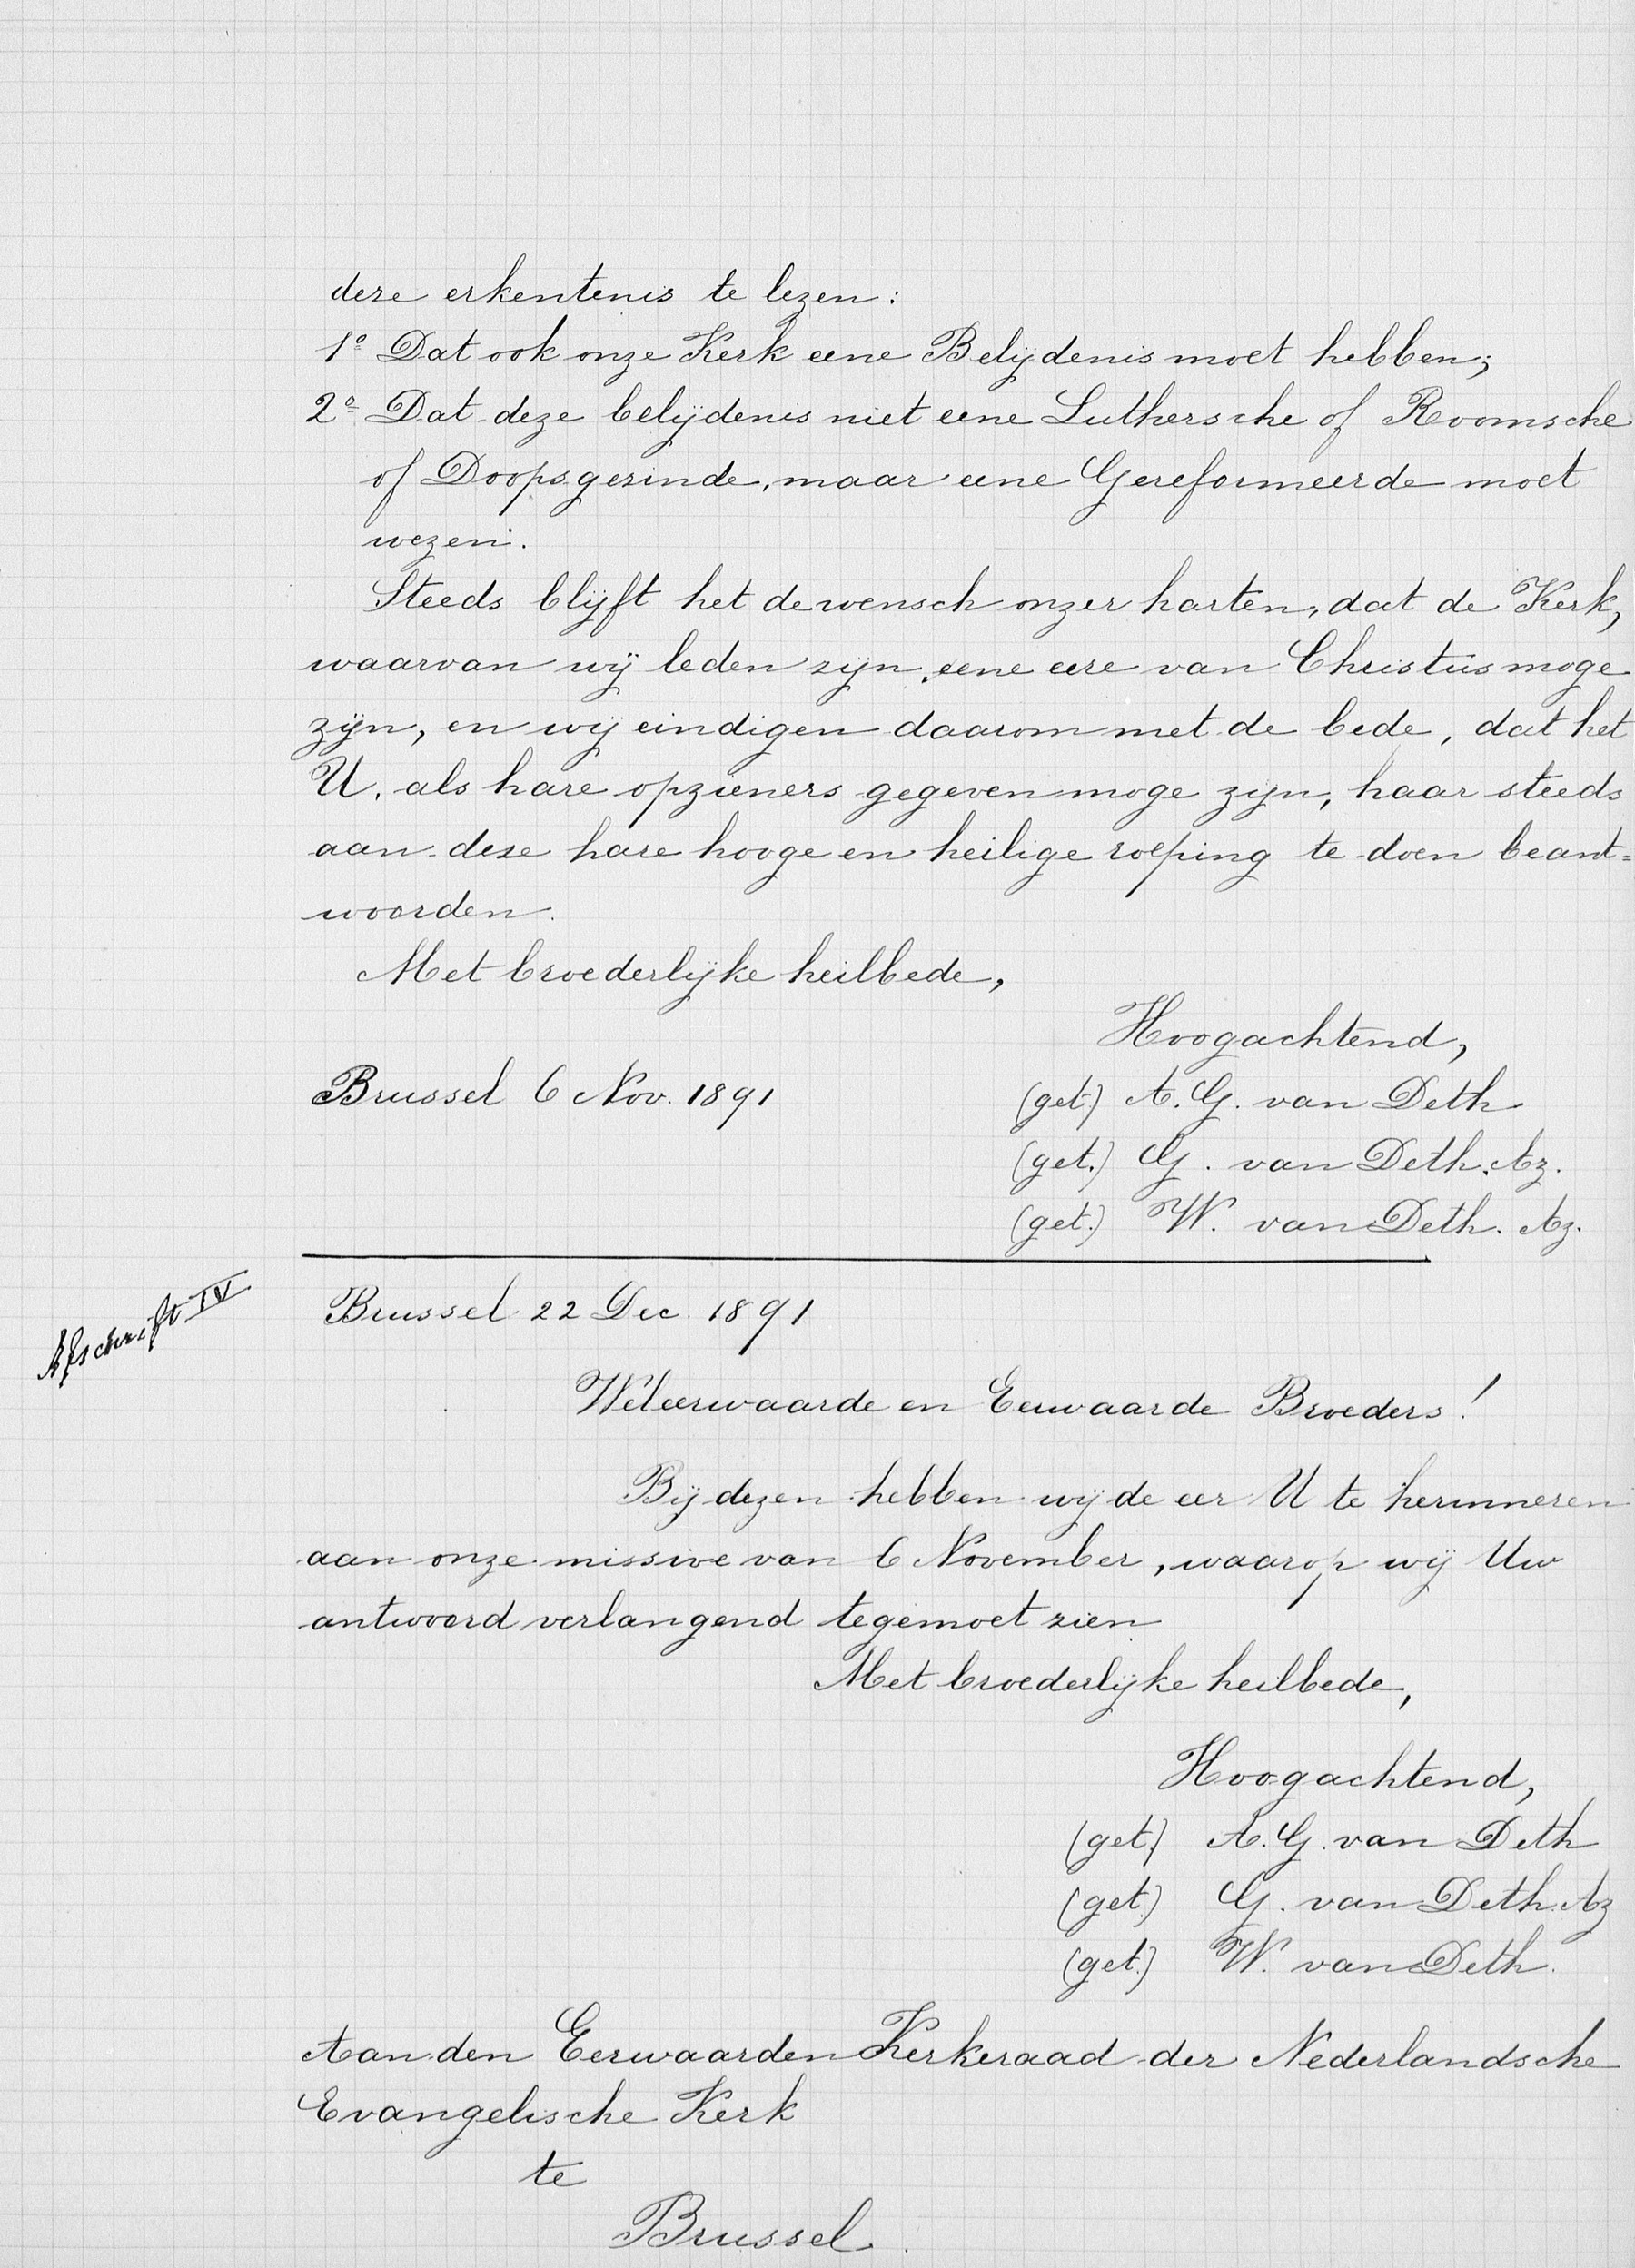 dere erkentenis te lezen:
1º Dat ook onze Kerk eene Belijdenis moet hebben;
2º Dat deze belijdenis niet eene Luthersche of Roomsche
of Doopsgezinde, maar eene Gereformeerde moet
wezen.
Steeds blijft het de wensch onzer harten, dat de Kerk,
waarvan wij leden zijn, eene eere van Christus moge
zijn, en wij eindigen daarom met de bede, dat het
U, als hare opzieners gegeven moge zijn, haar steeds
aan deze hare hooge en heilige roeping te doen beant=
woorden.
Met broederlijke heilbede,
Hoogachtend,
Brussel 6 Nov. 1891
(get) A. G. van Deth
(get.) G. van Deth. Az.
(get.) W. van Deth. Az.
Afschrift IV
Brussel 22 Dec. 1891
Weleerwaarde en Eerwaarde Broeders!
Bij dezen hebben wij de eer U te herinneren
aan onze missive van 6 November, waarop wij Uw
antwoord verlangend tegemoet zien
Met broederlijke heilbede,
Hoogachtend,
(get.) A. G. van Deth
(get.) G. van Deth. Az
(get.) W. van Deth.
Aan den Eerwaarden Kerkeraad der Nederlandsche
Evangelische Kerk
te
Brussel.